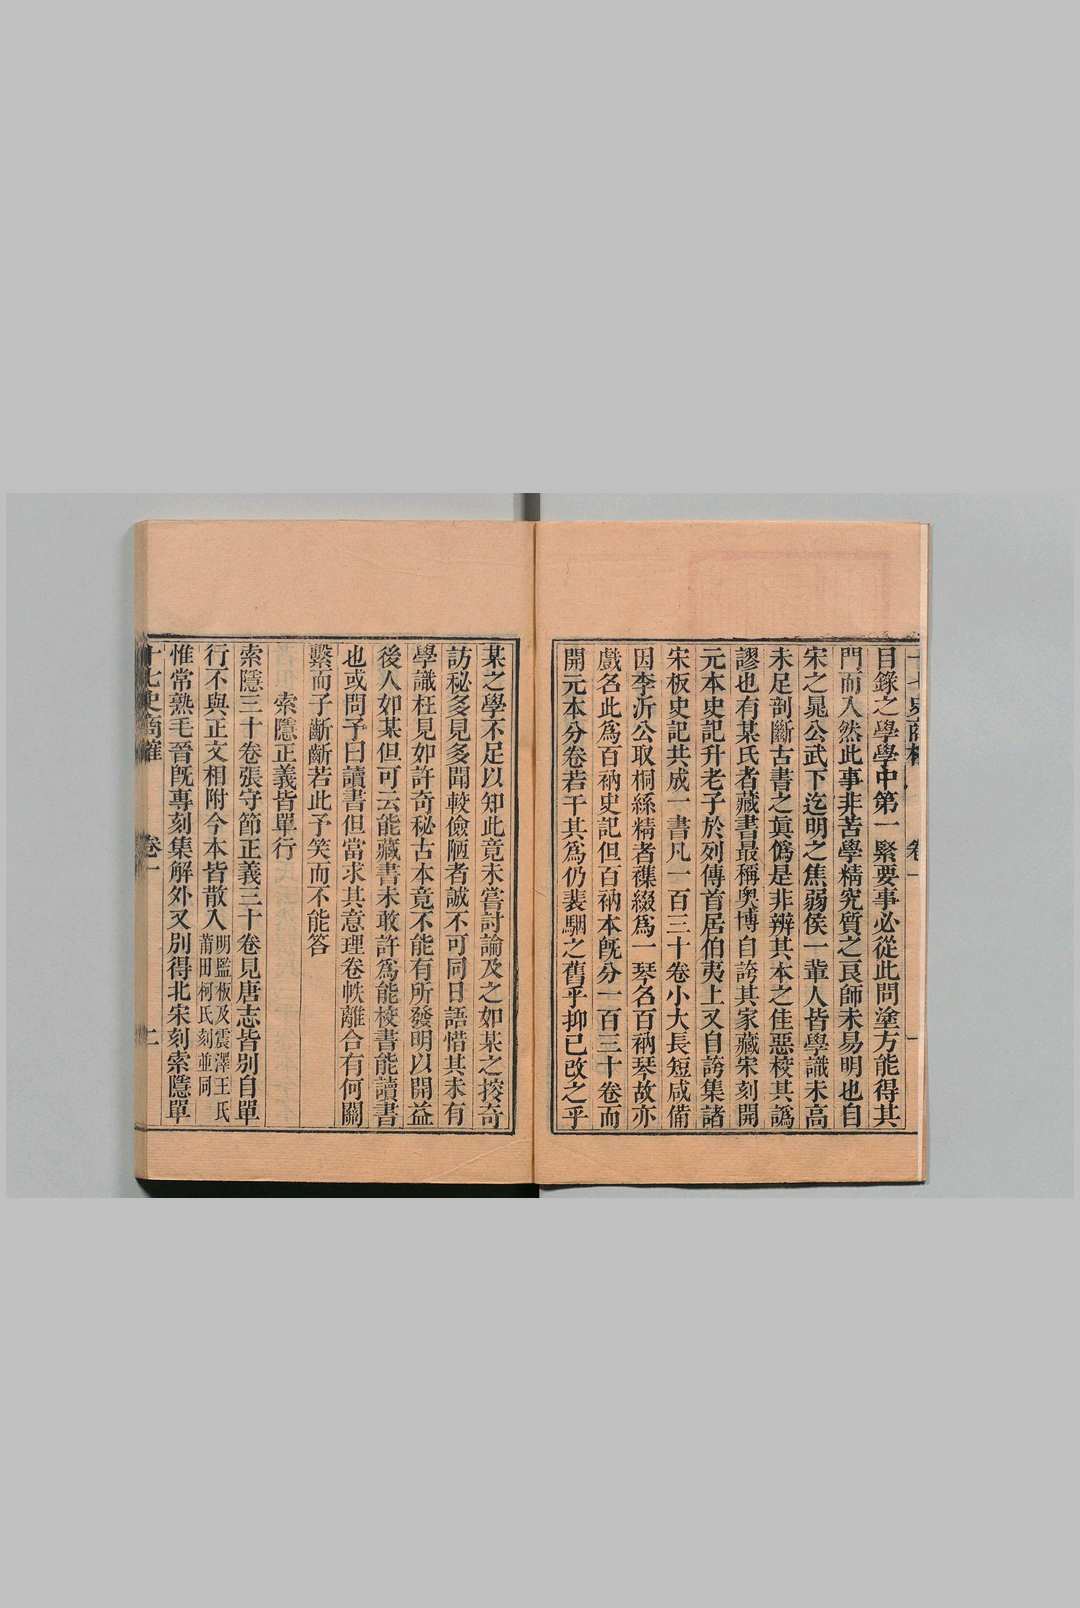 十七史商榷 卷一 一
目錄之學學中第一緊要事必從此問塗方能得其
門而入然此事非苦學精究質之良師未易明也自
宋之晁公武下迄明之焦弱侯一輩人皆學識未高
未足剖斷古書之眞僞是非辨其本之佳惡校其譌
謬也有某氏者藏書最稱奧博自誇其家藏宋刻開
元本史記升老子於列傳首居伯夷上又自誇集諸
宋板史記共成一書凡一百三十卷小大長短咸備
因李沂公取桐絲精者襍綴爲一琴名百衲琴故亦
戲名此爲百衲史記但百衲本旣分一百三十卷而
開元本分卷若干其爲仍裴駰之舊乎抑已改之乎
某之學不足以知此竟未嘗討論及之如某之搜奇
訪秘多見多聞較儉陋者誠不可同日語惜其未有
學識枉見如許奇秘古本竟不能有所發明以開益
後人如某但可云能藏書未敢許爲能校書能讀書
也或問予曰讀書但當求其意理卷帙離合有何關
繫而子齗齗若此予笑而不能答
索隱正義皆單行
索隱三十卷張守節正義三十卷見唐志皆別自單
行不與正文相附今本皆散入明監板及震澤王氏莆田柯氏刻並同
惟常熟毛晉旣專刻集解外又別得北宋刻索隱單
十七史商榷 卷一 二